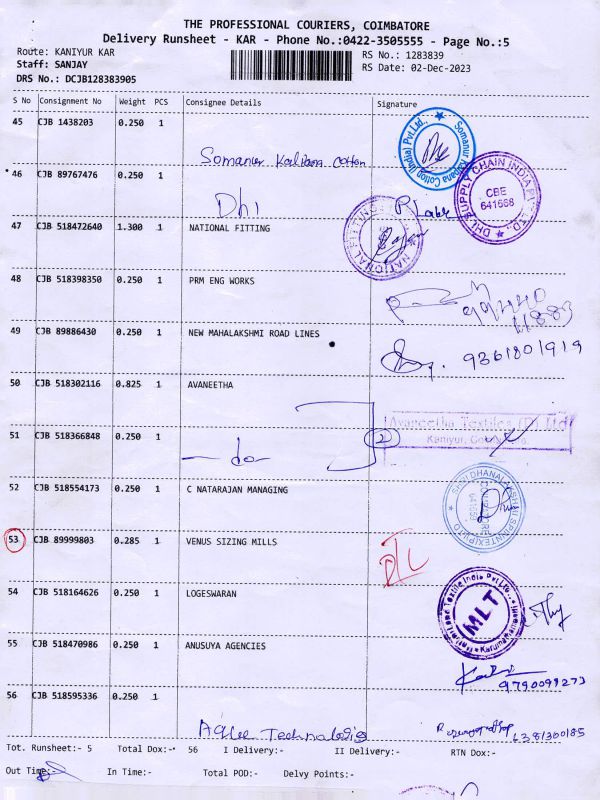 THE PROFESSIONAL COURIERS, COIMBATORE
Delivery Runsheet - KAR - Phone No.:0422-3505555 - Page No.:5
Route: KANIYUR KAR
RS No.: 1283839
Staff: SANJAY
RS Date: 02-Dec-2023
DRS No.: DCJB128383905
S No Consignment No Weight PCS Consignee Details Signature
45 CJB 1438203 0.250 1
Somanur Kalpana Cotton
Somanur Kalpana Cotton (India) Pvt.Ltd.,
46 CJB 89767476 0.250 1
Dhl
DHL SUPPLY CHAIN INDIA P. LTD.
CBE
641668
47 CJB 518472640 1.300 1 NATIONAL FITTING
NATIONAL FITTINGS
48 CJB 518398350 0.250 1 PRM ENG WORKS
49 CJB 89886430 0.250 1 NEW MAHALAKSHMI ROAD LINES
9361801919
50 CJB 518302116 0.825 1 AVANEETHA
Avaneetha Textiles (P) Ltd
Kaniyur,
2
51 CJB 518366848 0.250 1
- do -
52 CJB 518554173 0.250 1 C NATARAJAN MANAGING
SRI DHANALAKSHMI SPINTEX (P) LTD
53 CJB 89999803 0.285 1 VENUS SIZING MILLS
54 CJB 518164626 0.250 1 LOGESWARAN
MLT
55 CJB 518470986 0.250 1 ANUSUYA AGENCIES
9790099273
56 CJB 518595336 0.250 1
Aqlee Technologis
6381300185
Tot. Runsheet:- 5 Total Dox:- 56 I Delivery:- II Delivery:- RTN Dox:-
Out Time:- In Time:- Total POD:- Delvy Points:-